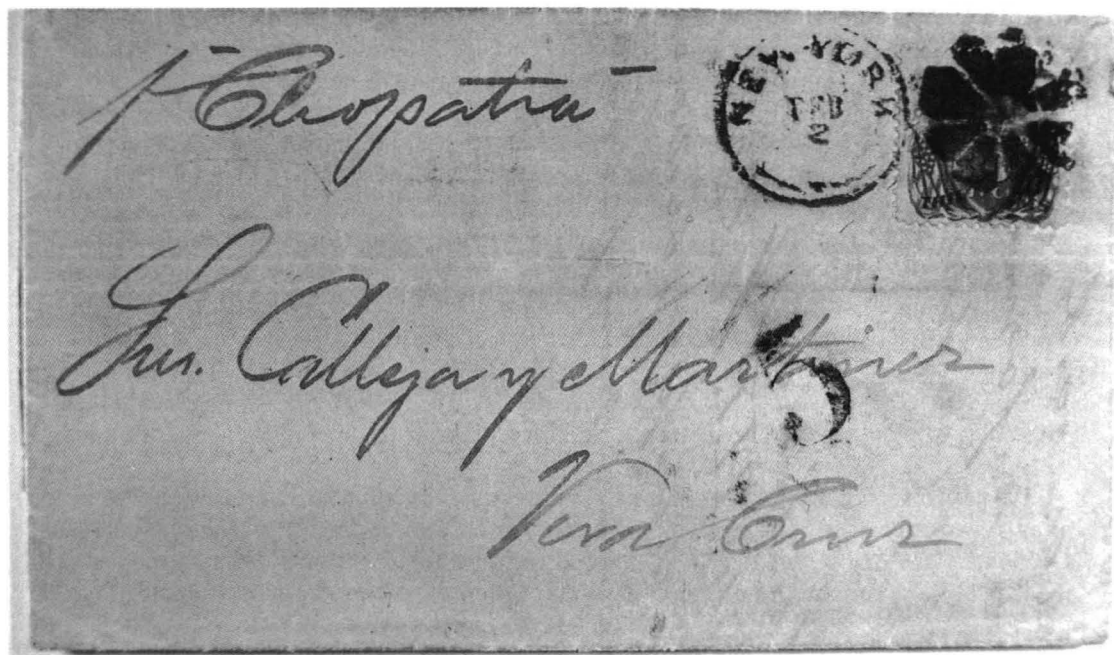 p Cleopatra
NEW YORK
FEB
2
Sres. Calleja y Martinez
5
Vera Cruz